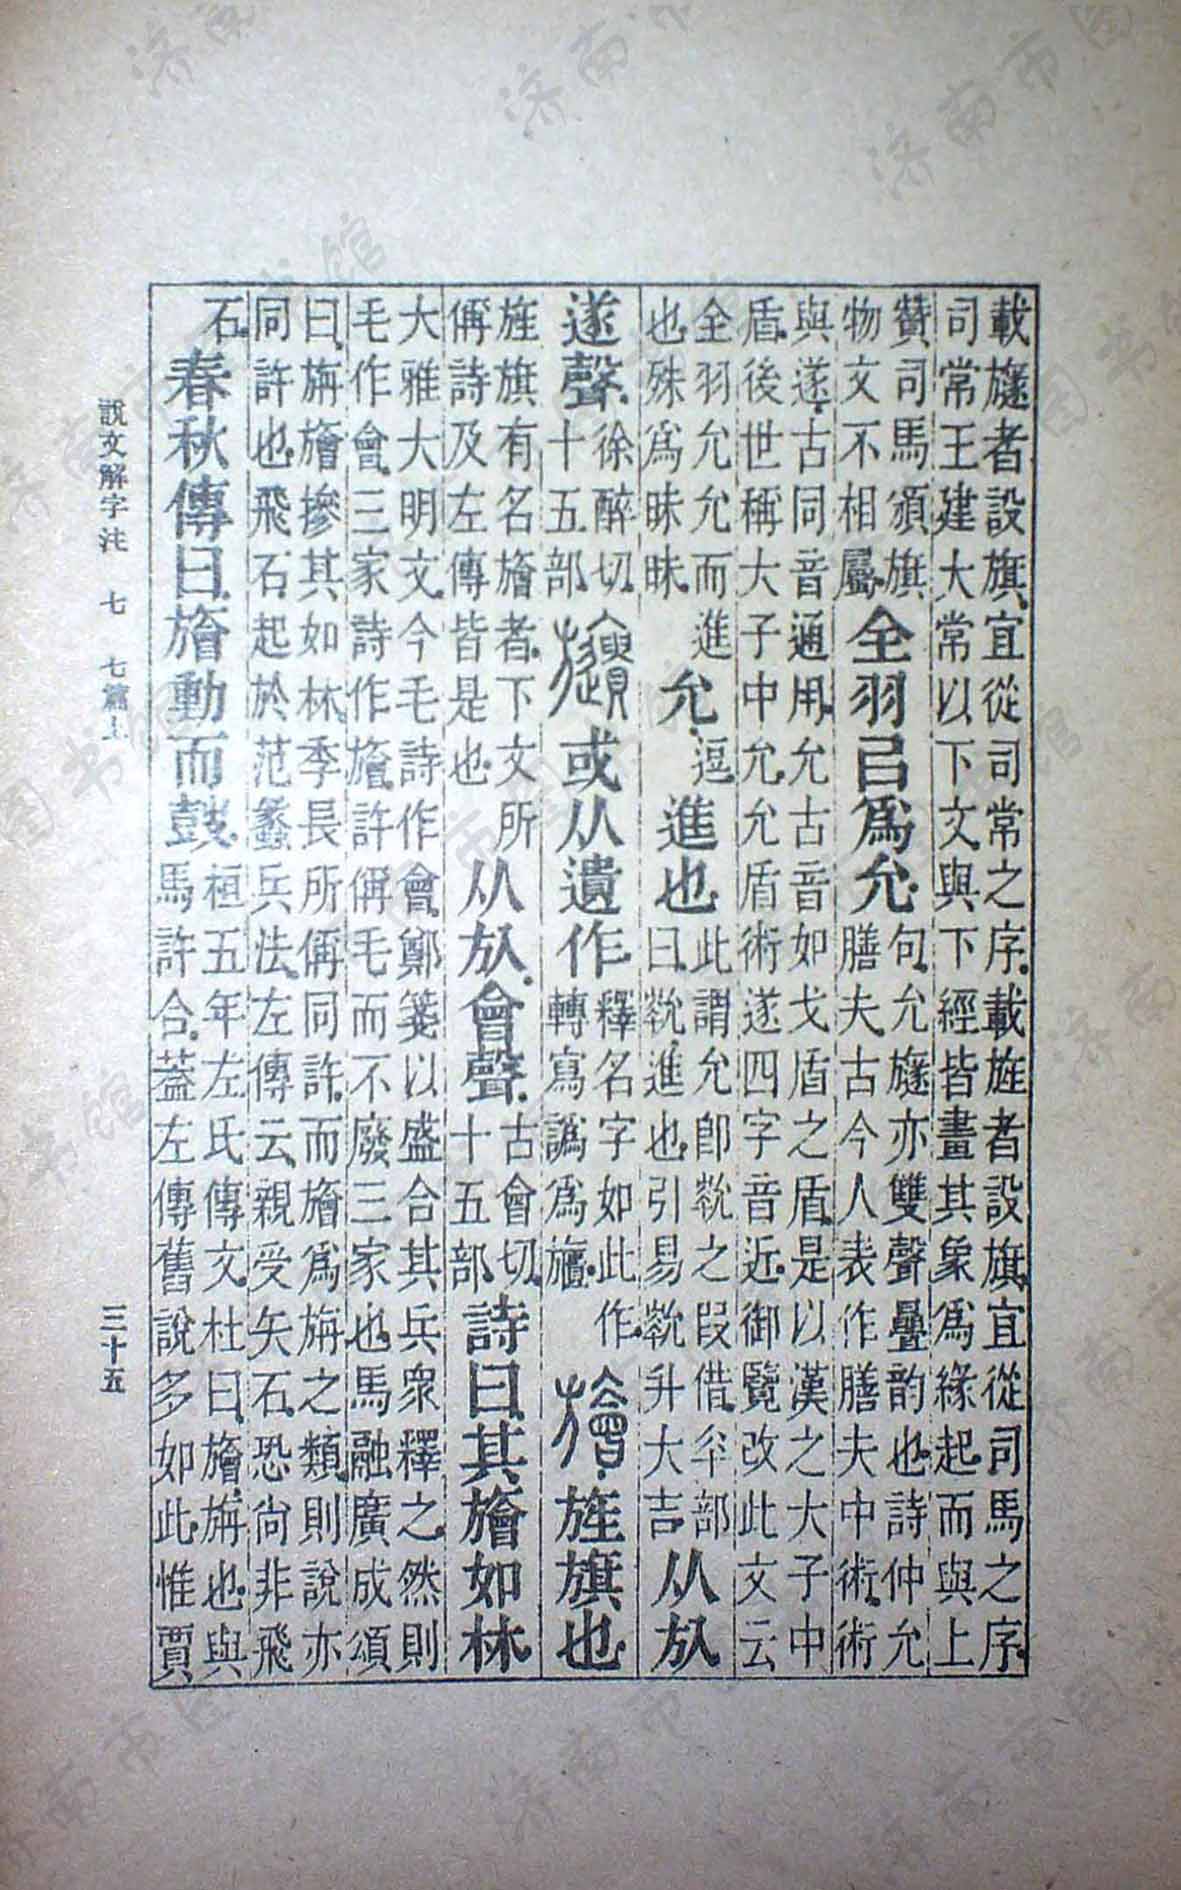 載旞者設旗宜從司常之序載旌者設旗宜從司馬之序
司常王建大常以下文與下經皆畫其象爲緣起而與上
贊司馬頒旗物文不相屬全羽㠯爲允句允旞亦雙聲曡韵也詩仲允膳夫古今人表作膳夫中術術
與遂古同音通用允古音如戈盾之盾是以漢之大子中
盾後世稱大子中允允盾術遂四字音近御覽改此文云
全羽允允而進也殊爲昧昧允逗進也此謂允卽㽙之叚借夲部曰㽙進也引易㽙升大吉从㫃
遂聲徐醉切十五部旞或从遺作釋名字如此作轉寫譌爲旜旝旌旗也
旌旗有名旝者下文所偁詩及左傳皆是也从㫃會聲古會切十五部詩曰其旝如林
大雅大明文今毛詩作會鄭箋以盛合其兵眾釋之然則
毛作會三家詩作旝許偁毛而不廢三家也馬融廣成頌
曰旃旝摻其如林季長所偁同許而旝爲旃之類則說亦
同許也飛石起於范蠡兵法左傳云親受矢石恐尙非飛
石春秋傳曰旝動而鼓桓五年左氏傳文杜曰旝旃也與馬許合葢左傳舊說多如此惟賈
說文解字注 七 七篇上 三十五
济南市图书馆